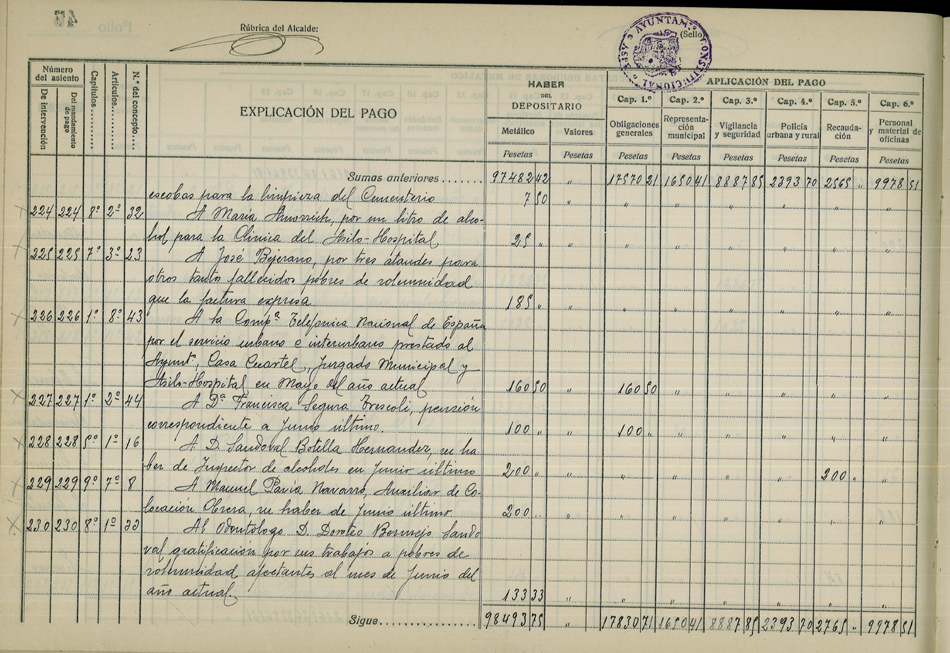 Rúbrica del Alcalde:
(Sello)
AYUNTAM
CONSTITUCIONAL
Folio
Número del asiento
De intervención
Del mandamiento de pago
Capítulos
Artículos
N.º del concepto
EXPLICACIÓN DEL PAGO
HABER DEL DEPOSITARIO
Metálico
Valores
Pesetas Pesetas
APLICACIÓN DEL PAGO
Cap. 1.º Cap. 2.º Cap. 3.º Cap. 4.º Cap. 5.º Cap. 6.º
Obligaciones generales
Representación municipal
Vigilancia y seguridad
Policía urbana y rural
Recaudación
Personal y material de oficinas
Pesetas Pesetas Pesetas Pesetas Pesetas Pesetas
Sumas anteriores....... 97482 42 " 17570 21 1650 41 8887 85 2393 70 2565 " 9978 51
escobas para la limpieza del Cementerio 7 50 "
224 224 8º 2º 32 A Maria por un litro de alco-
hol para la Clinica del Asilo-Hospital 25 " "
225 225 7º 3º 23 A José Bejerano, por tres ataudes para
otros tanto fallecidos pobres de solemnidad
que la factura expresa 185 " "
226 226 1º 8º 43 A la Compª Telefonica Nacional de España
por el servicio urbano e interurbano prestado al
Ayuntº, Casa Cuartel, Juzgado Municipal y
Asilo-Hospital en Mayo del año actual 160 50 " 160 50
227 227 1º 2º 44 A Dª Francisca Segura pensión
correspondiente a Junio último. 100 " " 100 "
228 228 5º 1º 16 A D. Sandoval Botella Hernandez, su ha-
ber de Inspector de alcoholes en Junio último 200 " " 200 "
229 229 9º 7º 8 A Manuel Pavia Navarro, Auxiliar de Co-
locación Obrera, su haber de Junio último 200 " "
230 230 8º 1º A Odontólogo D. Doroteo Bornejo Sando-
val gratificación por sus trabajos a pobres de
solemnidad afectantes al mes de Junio del
año actual. 133 33 "
Sigue................ 98493 75 " 17830 71 1650 41 8887 85 2393 70 2765 " 9978 51